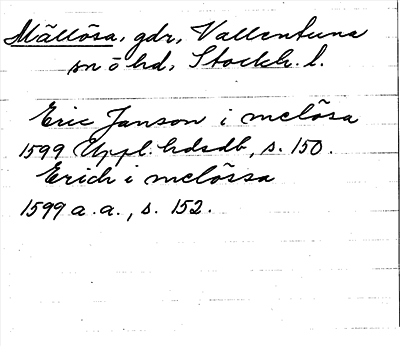 Mällösa, gdr, Vallentuna
sn o hd, Stockh. l.
Eric Janson i melösa
1599 Uppl. hdsdb, s. 150.
Erich i melössa
1599 a. a., s. 152.